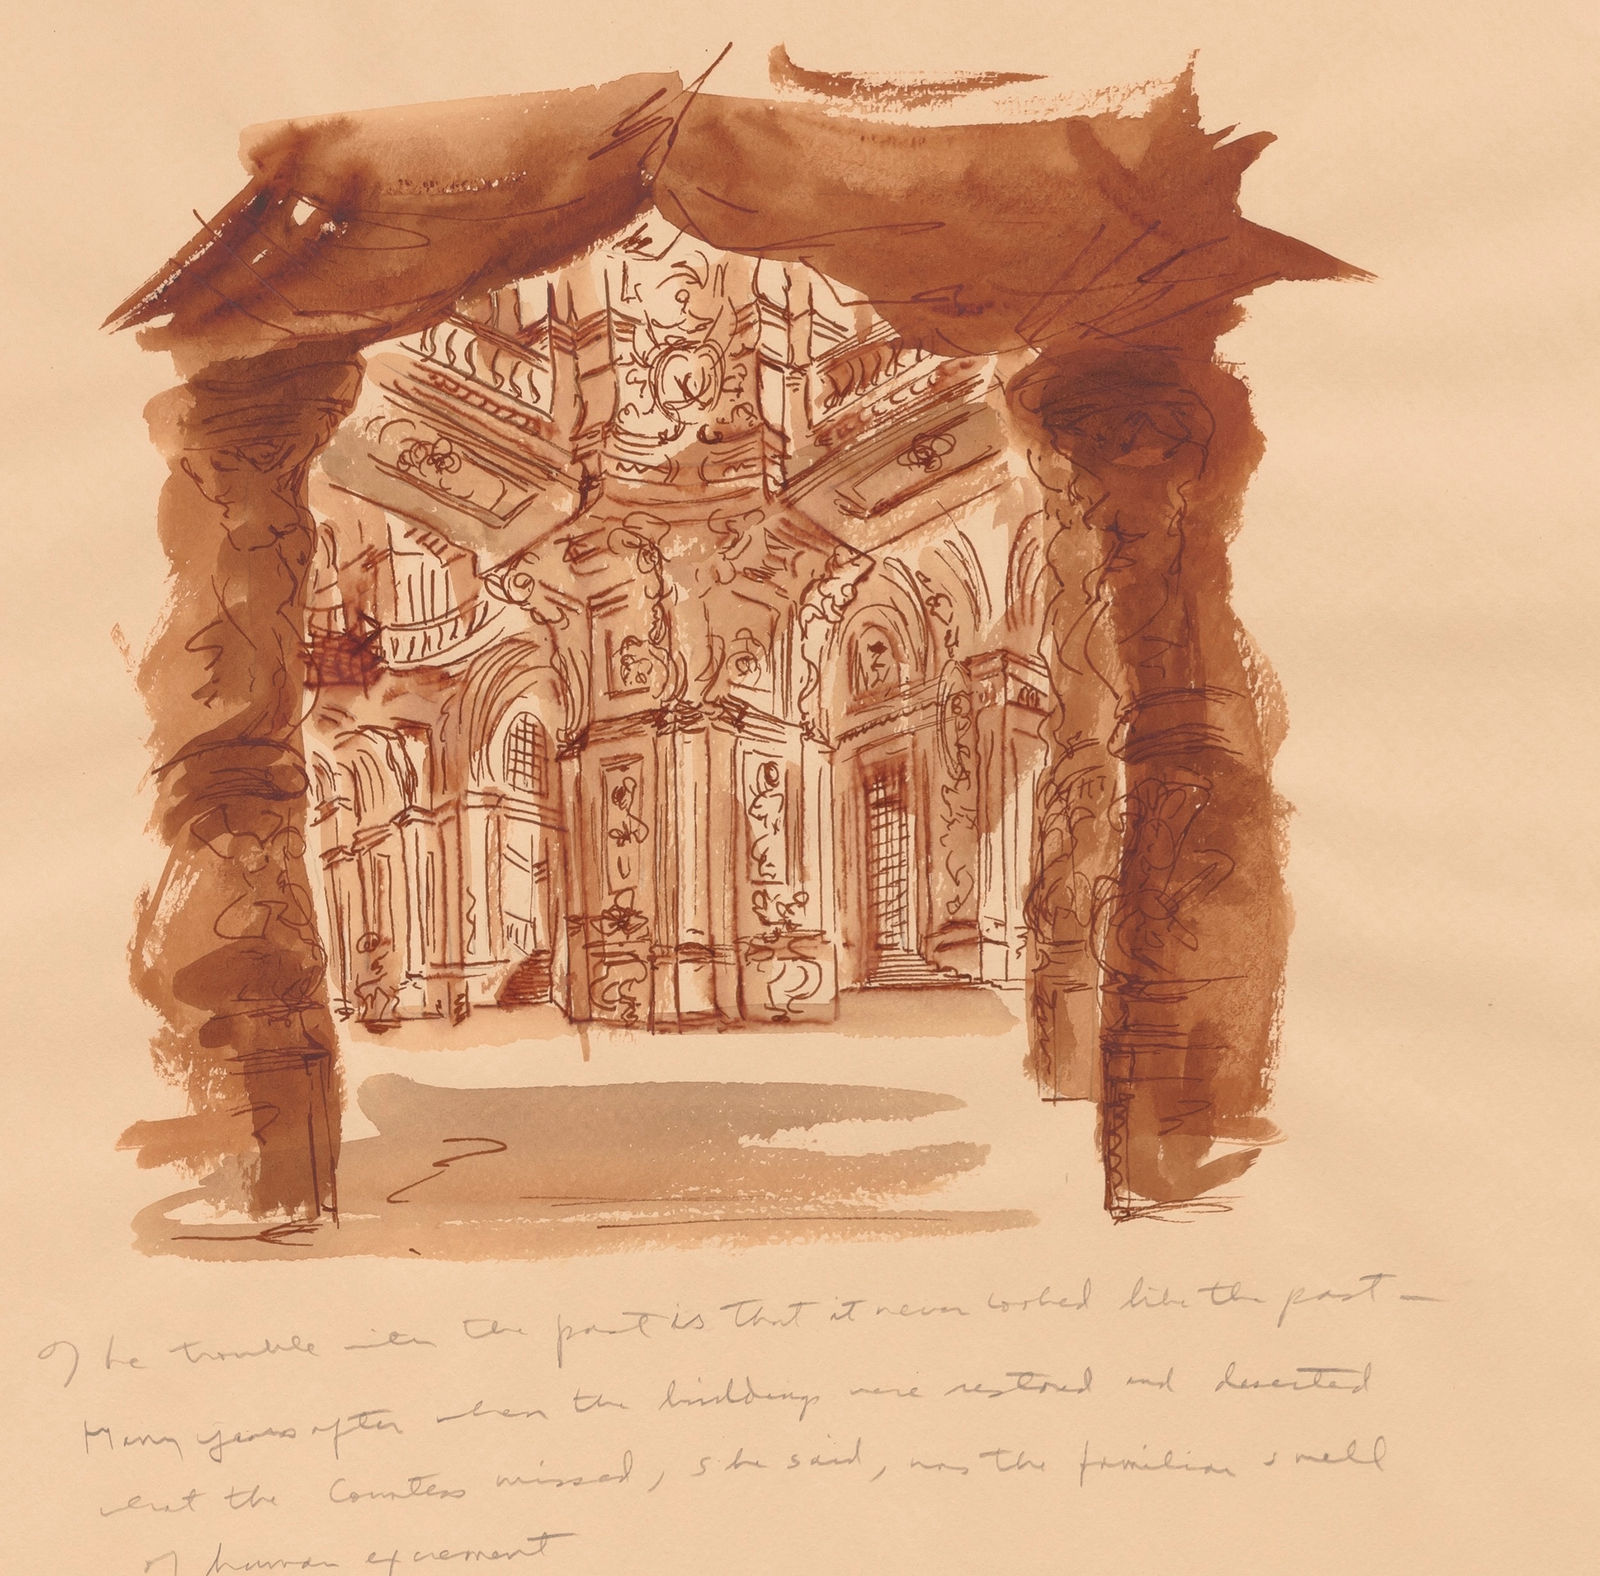 The trouble with the past is that it never looked like the past —
Many years after when the buildings were restored and deserted
what the Countess missed, she said, was the familiar smell
of human excrement